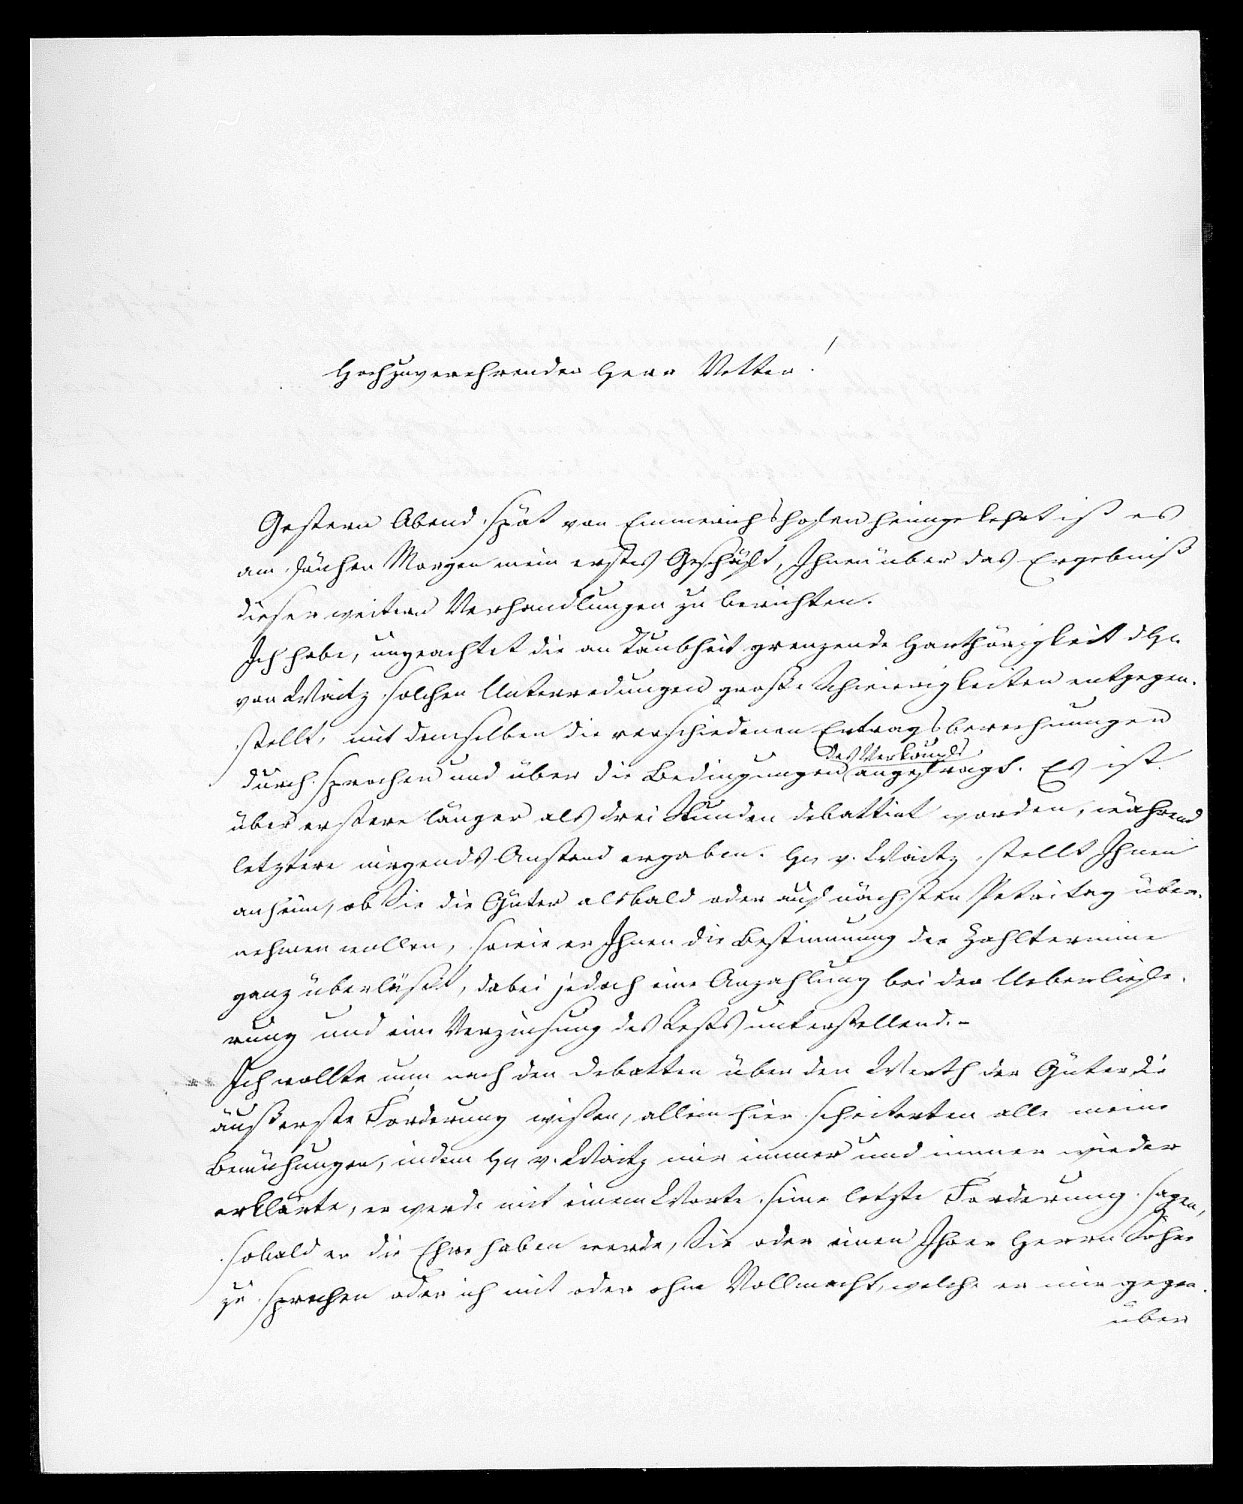 Hochzuverehrender Herr Vetter!
Gestern Abend spät von Emmerichshofen heimgekehrt ist es
am frühen Morgen mein erstes Geschäft, Ihnen über das Ergebniß
dieser weitern Verhandlungen zu berichten.
Ich habe, ungeachtet die an Taubheit grenzende Harthörigkeit d Hn
von Waitz solchen Unterredungen große Schwierigkeiten entgegen-
stellt, mit demselben die verschiedenen Ertragsberechnungen
des Verkaufs
durchsprochen und über die Bedingungen angefragt. Es ist
über erstere länger als drei Stunden debattirt worden, während
letztere nirgends Anstand ergaben. Hr v. Waitz stellt Ihnen
anheim, ob Sie die Güter alsbald oder auf nächsten Petritag über-
nehmen wollen, sowie er Ihnen die Bestimmung der Zahltermine
ganz überläßt, dabei jedoch eine Anzahlung bei der Ueberliefe-
rung und eine Verzinsung des Rests unterstellend. -
Ich wollte nun nach den Debatten über den Werth der Güter die
äußerste Forderung wißen, allein hier scheiterten alle meine
Bemühungen, indem Hr v. Waitz mir immer und immer wieder
erklärte, er werde mit einem Worte seine letzte Forderung sagen,
sobald er die Ehre haben werde, Sie oder einen Ihrer Herrn Söhne
zu sprechen oder ich mit oder ohne Vollmacht, welche er mir gegen-
über